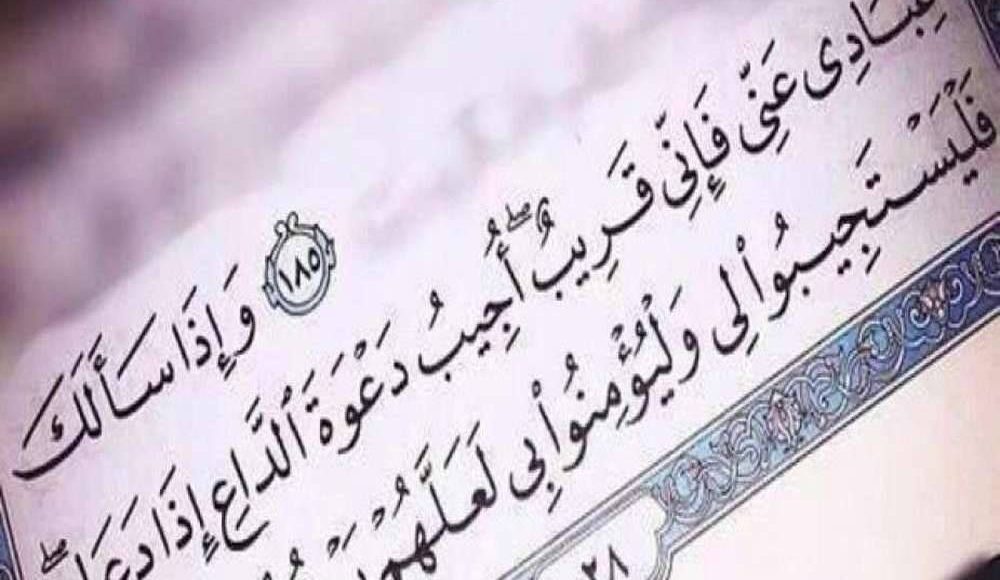 ١٨٥ وَإِذَا سَأَلَكَ
عِبَادِى عَنِّى فَإِنِّى قَرِيبٌۖ أُجِيبُ دَعْوَةَ ٱلدَّاعِ إِذَا
فَلْيَسْتَجِيبُوا۟ لِى وَلْيُؤْمِنُوا۟ بِى لَعَلَّهُمْ
٢٨